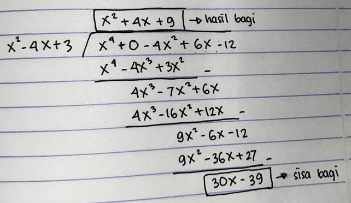 x² + 4x + 9 → hasil bagi
x² - 4x + 3 √ x⁴ + 0 - 4x² + 6x - 12
x⁴ - 4x³ + 3x² -
4x³ - 7x² + 6x
4x³ - 16x² + 12x -
9x² - 6x - 12
9x² - 36x + 27 -
30x - 39 → sisa bagi